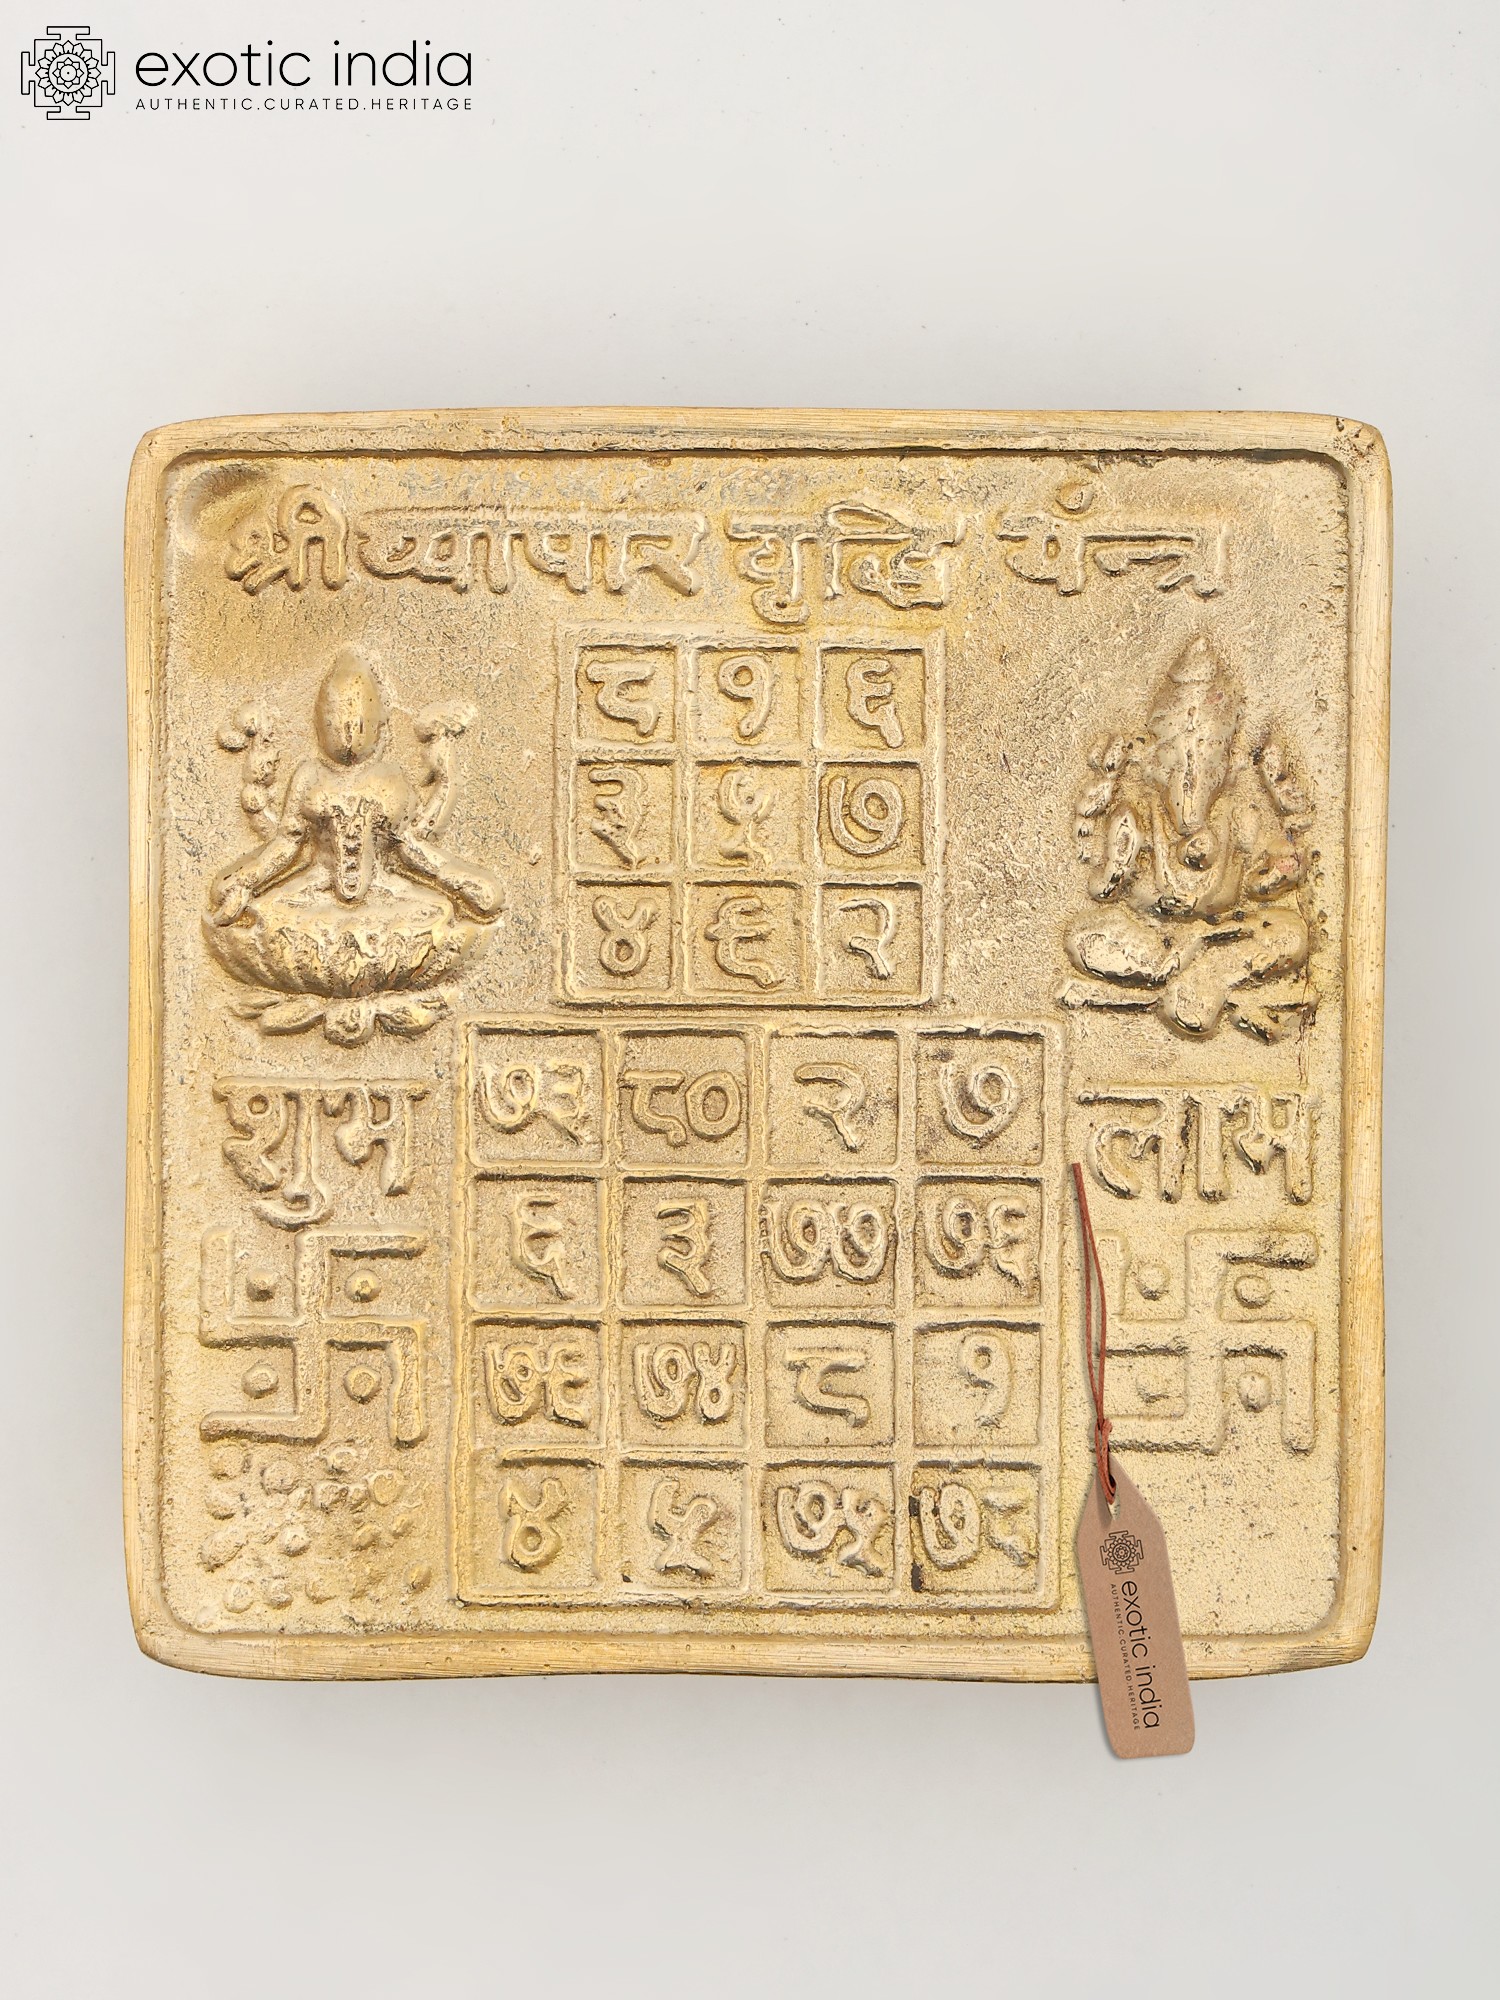 exotic india
AUTHENTIC.CURATED.HERITAGE
श्री व्यापार वृद्धि यंन्त्र
८ १ ६
३ ५ ७
४ ९ २
शुभ
लाभ
७३ ८० २ ७
६ ३ ७७ ७६
७९ ७४ ८ १
४ ५ ७५ ७८
exotic india
AUTHENTIC.CURATED.HERITAGE